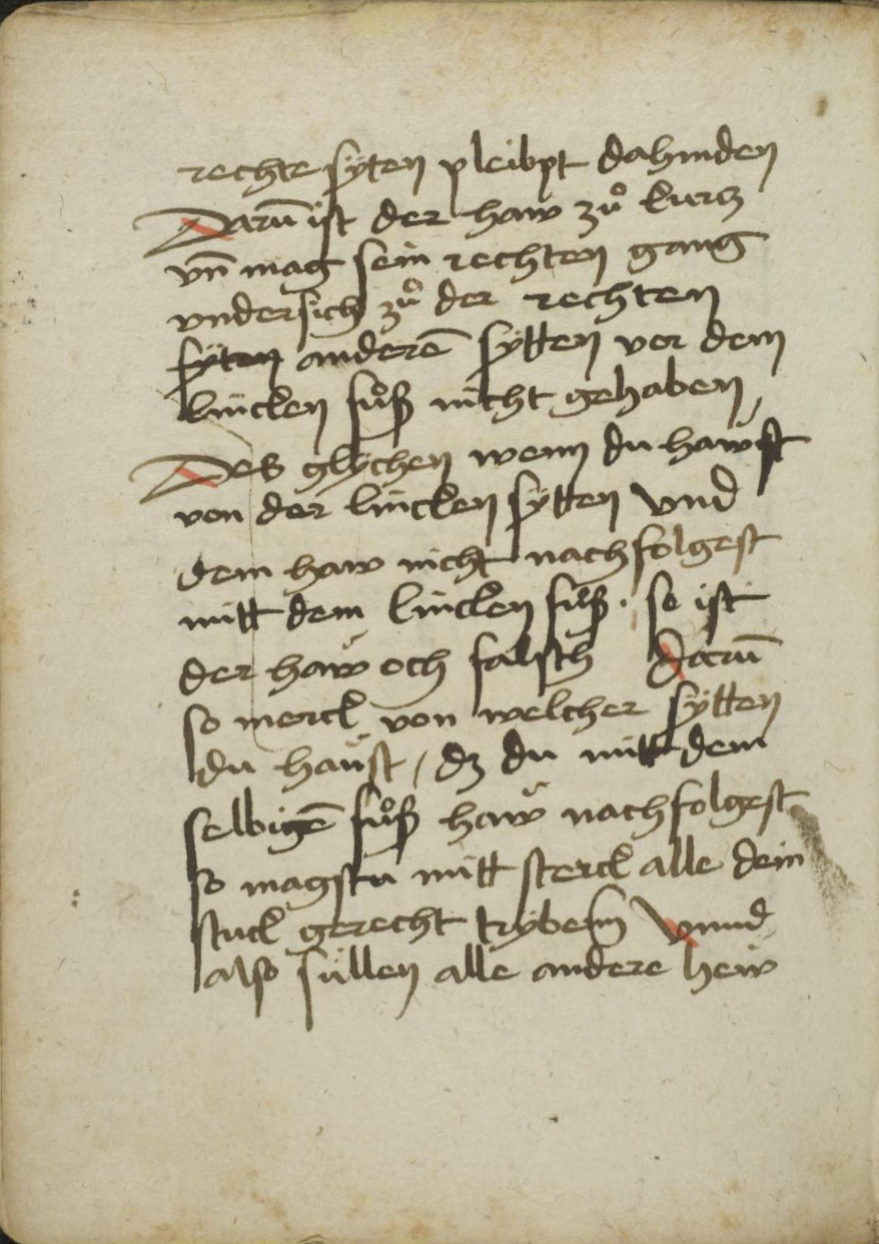 rechte sÿten pleibpt dahinden
Darū ist der haw zů kurcz
vn̄ mag sein rechten gang
vndersich zů der rechten
sÿten anderē sÿtten vor dem
lincken fůß nicht gehaben
Des glÿchen wenn du hawst
von der lincken sÿtten vnd
dem haw nicht nachfolgest
mitt dem lincken fůß · so ist
der haw och falsch darū
so merck von welcher sÿtten
du haust / dz du mitt dem
selbigē fůß haw nachfolgest
so magstu mitt sterck alle dein
stuck gerecht trÿben Vnnd
also süllen alle andere hew